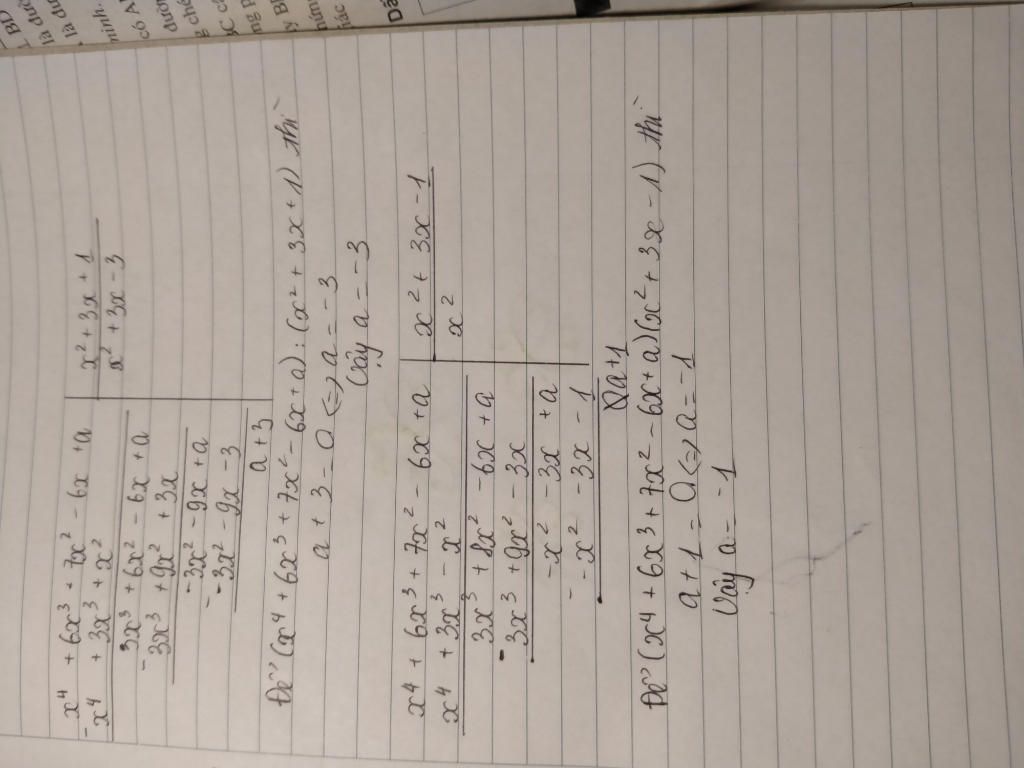 - x⁴ + 6x³ + 7x² - 6x + a | x² + 3x + 1
x⁴ + 3x³ + x² | x² + 3x - 3
- 3x³ + 6x² - 6x + a
3x³ + 9x² + 3x
- -3x² - 9x + a
-3x² - 9x - 3
a + 3
Để (x⁴ + 6x³ + 7x² - 6x + a) : (x² + 3x + 1) thì
a + 3 = 0 <=> a = -3
Vậy a = -3
x⁴ + 6x³ + 7x² - 6x + a | x² + 3x - 1
x⁴ + 3x³ - x² | x²
3x³ + 8x² - 6x + a
- 3x³ + 9x² - 3x
-x² - 3x + a
- -x² - 3x - 1
a + 1
Để (x⁴ + 6x³ + 7x² - 6x + a) (x² + 3x - 1) thì
a + 1 = 0 <=> a = -1
Vậy a = -1